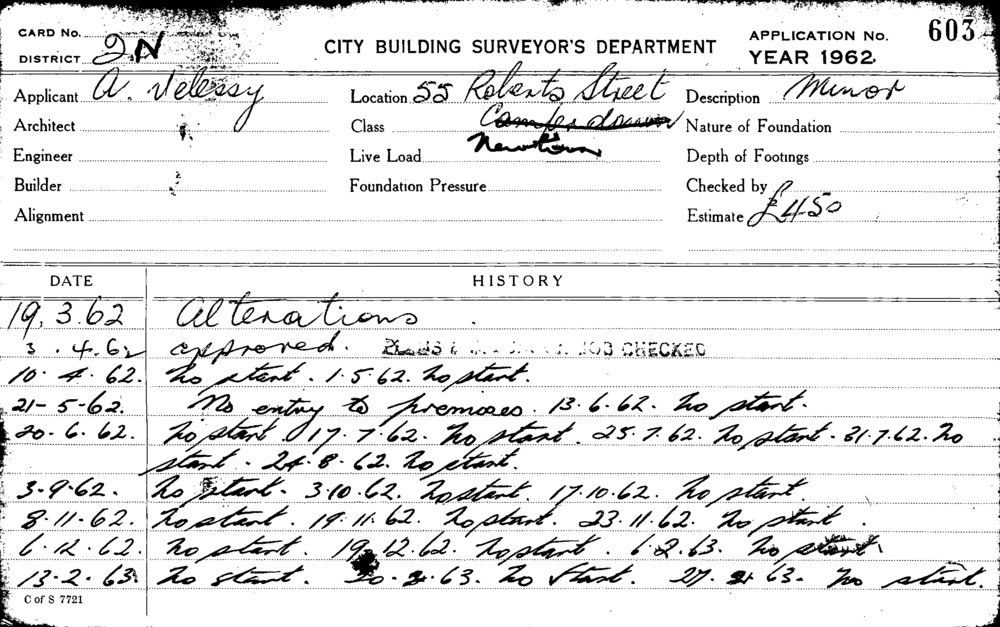 CARD No.
DISTRICT 2N
CITY BUILDING SURVEYOR'S DEPARTMENT
APPLICATION No. 603
YEAR 1962.
Applicant A. Velessy
Location 55 Roberts Street
Description Minor
Architect
Class Camperdown
Nature of Foundation
Engineer
Live Load Newtown
Depth of Footings
Builder
Foundation Pressure
Checked by
Alignment
Estimate £450
DATE HISTORY
19.3.62 Alterations
3.4.62 approved. JOB CHECKED
10.4.62. No start. 1.5.62. No start.
21-5-62. No entry to premises. 13.6.62. No start.
20.6.62. No start. 17.7.62. No start. 25.7.62. No start. 31.7.62. No
start. 24.8.62. No start.
3.9.62. No start. 3.10.62. No start. 17.10.62. No start.
8.11.62. No start. 19.11.62. No start. 23.11.62. No start.
6.12.62. No start. 19.12.62. No start. 6.2.63. No start.
13.2.63. No start. 20.2.63. No start. 27.2.63. No start.
C of S 7721